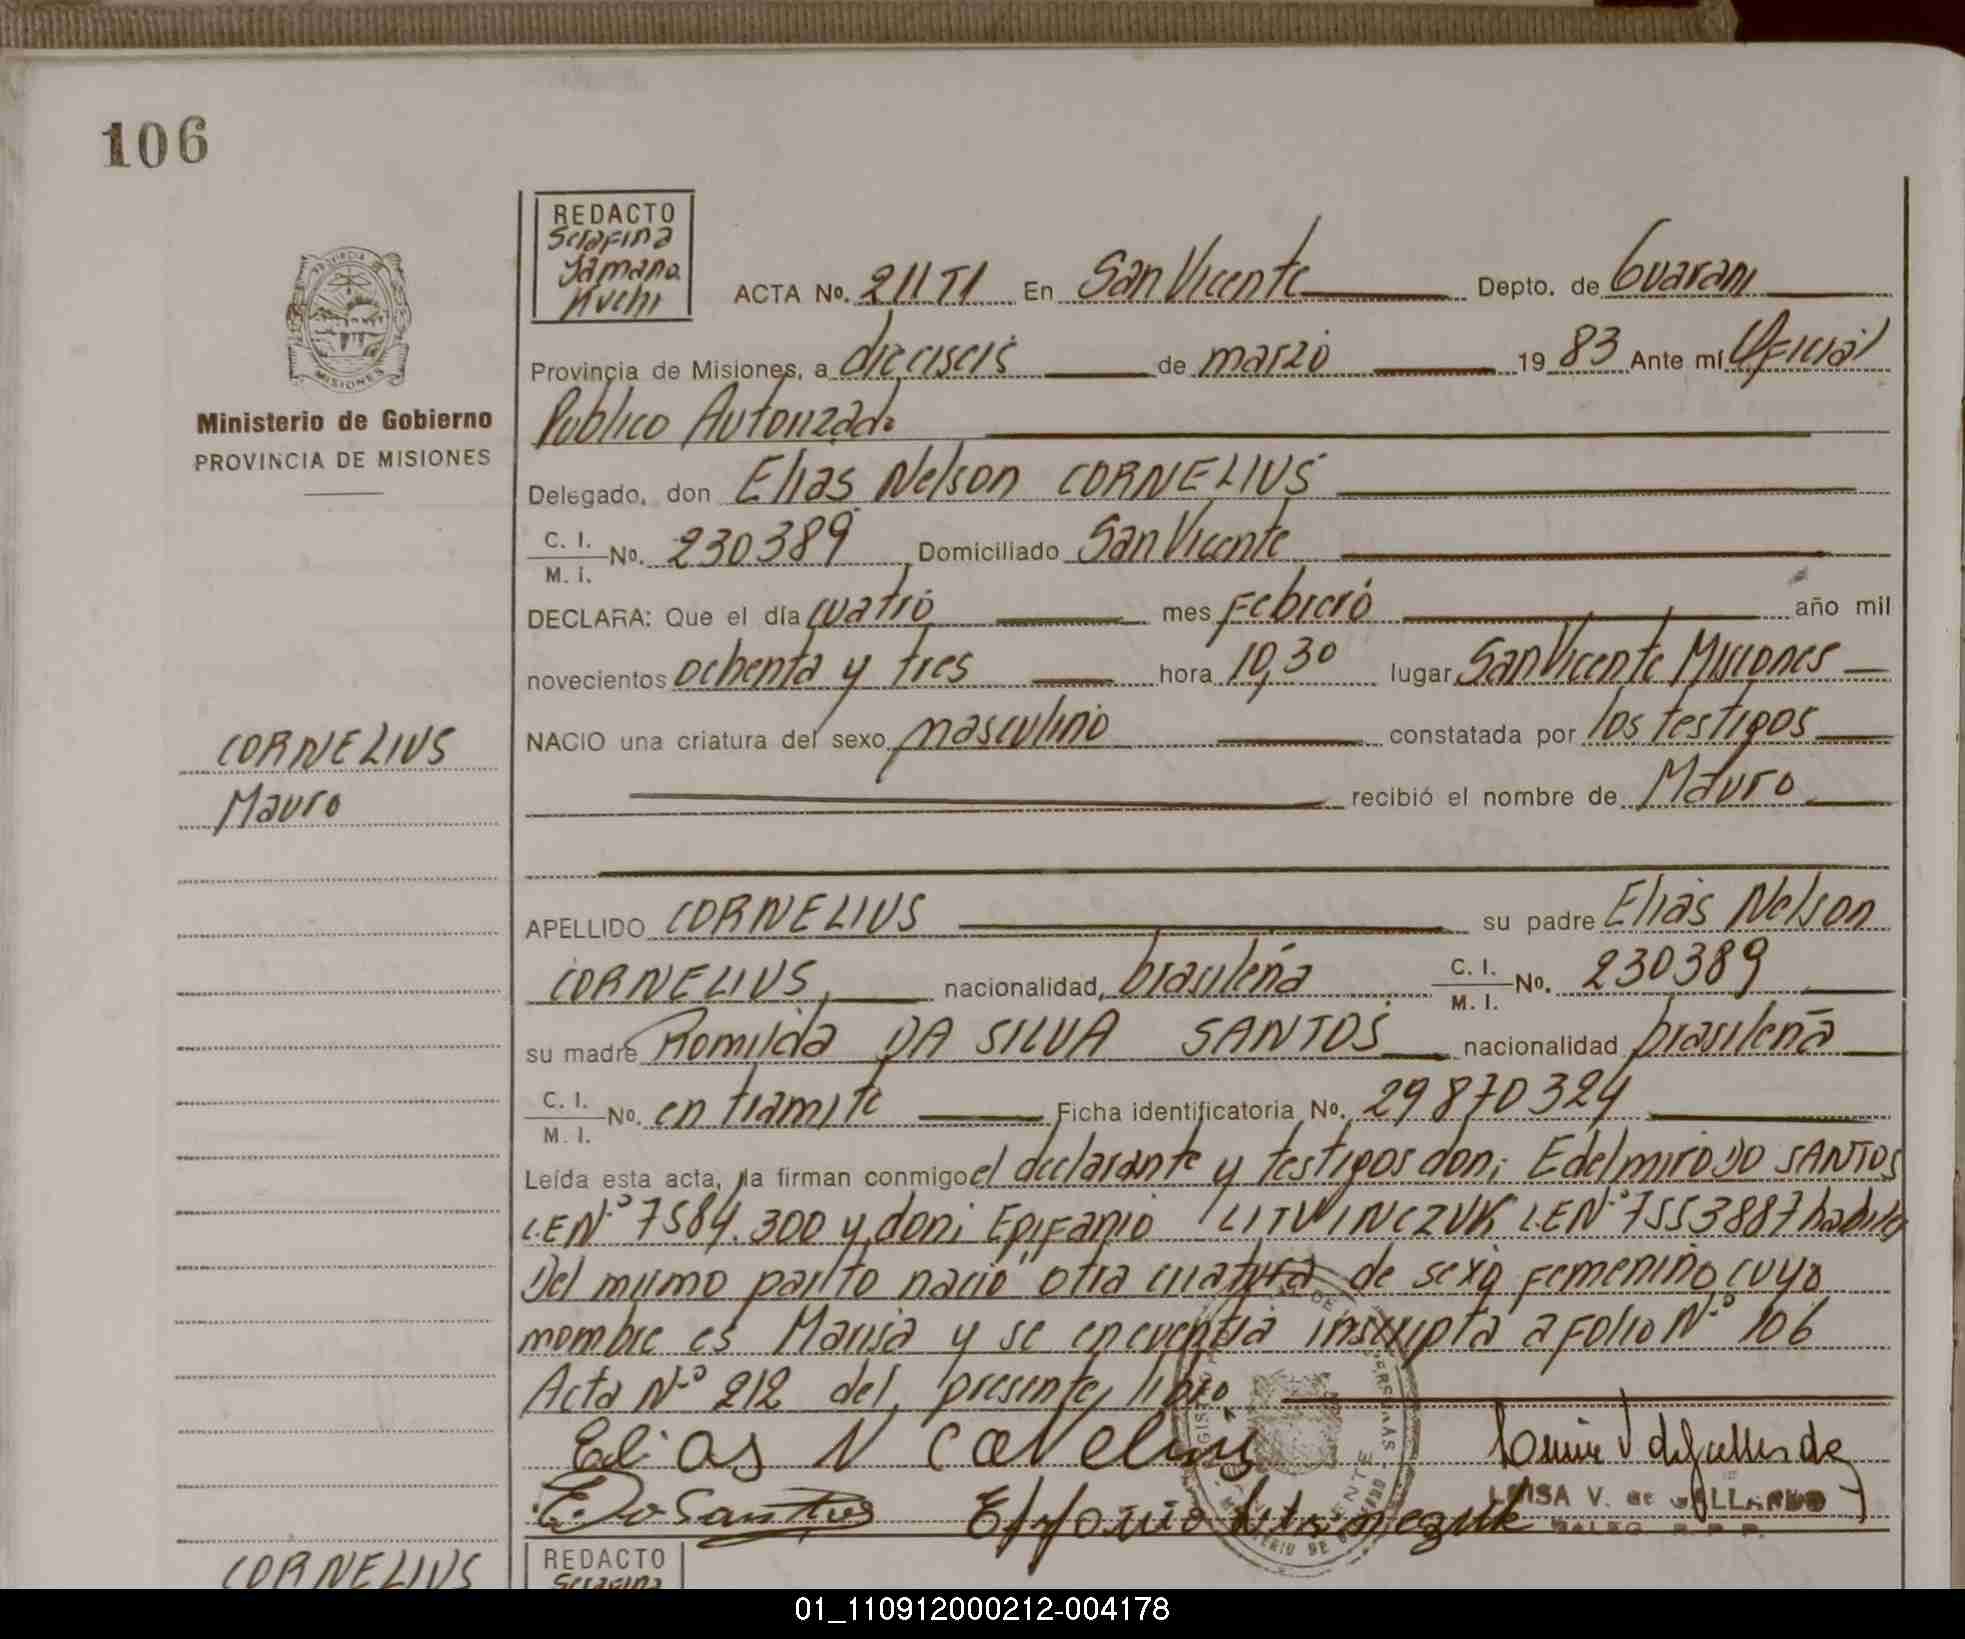 106
REDACTO
Serafina
ACTA No. 211 TI En San Vicente Depto. de Guarani
Provincia de Misiones, a dieciseis de marzo 19 83 Ante mí Oficial
Publico Autorizado
Ministerio de Gobierno
PROVINCIA DE MISIONES
MISIONES
Delegado, don Elias Nelson CORNELIUS
C. I.
M. I. No. 230389 Domiciliado San Vicente
DECLARA: Que el día cuatro mes Febrero año mil
novecientos ochenta y tres hora 10,30 lugar San Vicente Misiones
NACIO una criatura del sexo masculino constatada por los testigos
CORNELIUS
Mauro
recibió el nombre de Mauro
APELLIDO CORNELIUS su padre Elias Nelson
CORNELIUS, nacionalidad brasileña C. I.
M. I. No. 230389
su madre Romilda DA SILVA SANTOS nacionalidad brasileña
C. I.
M. I. No. en tramite Ficha identificatoria No. 29870324
Leída esta acta, la firman conmigo el declarante y testigos don; Edelmiro DO SANTOS
L.E.Nº 7584.300 y don; Epifanio LITWINCZUK L.E.Nº 7553887
Del mismo parto nació otra criatura de sexo femenino, cuyo
nombre es Marisa y se encuentra inscripta a folio Nº 106
Acta Nº 212 del presente libro
Elias N Cornelius
E. Do Santos
Epifanio Litwinczuk
LUISA V. de GALLARDO
REDACTO
Serafina
CORNELIUS
01_110912000212-004178